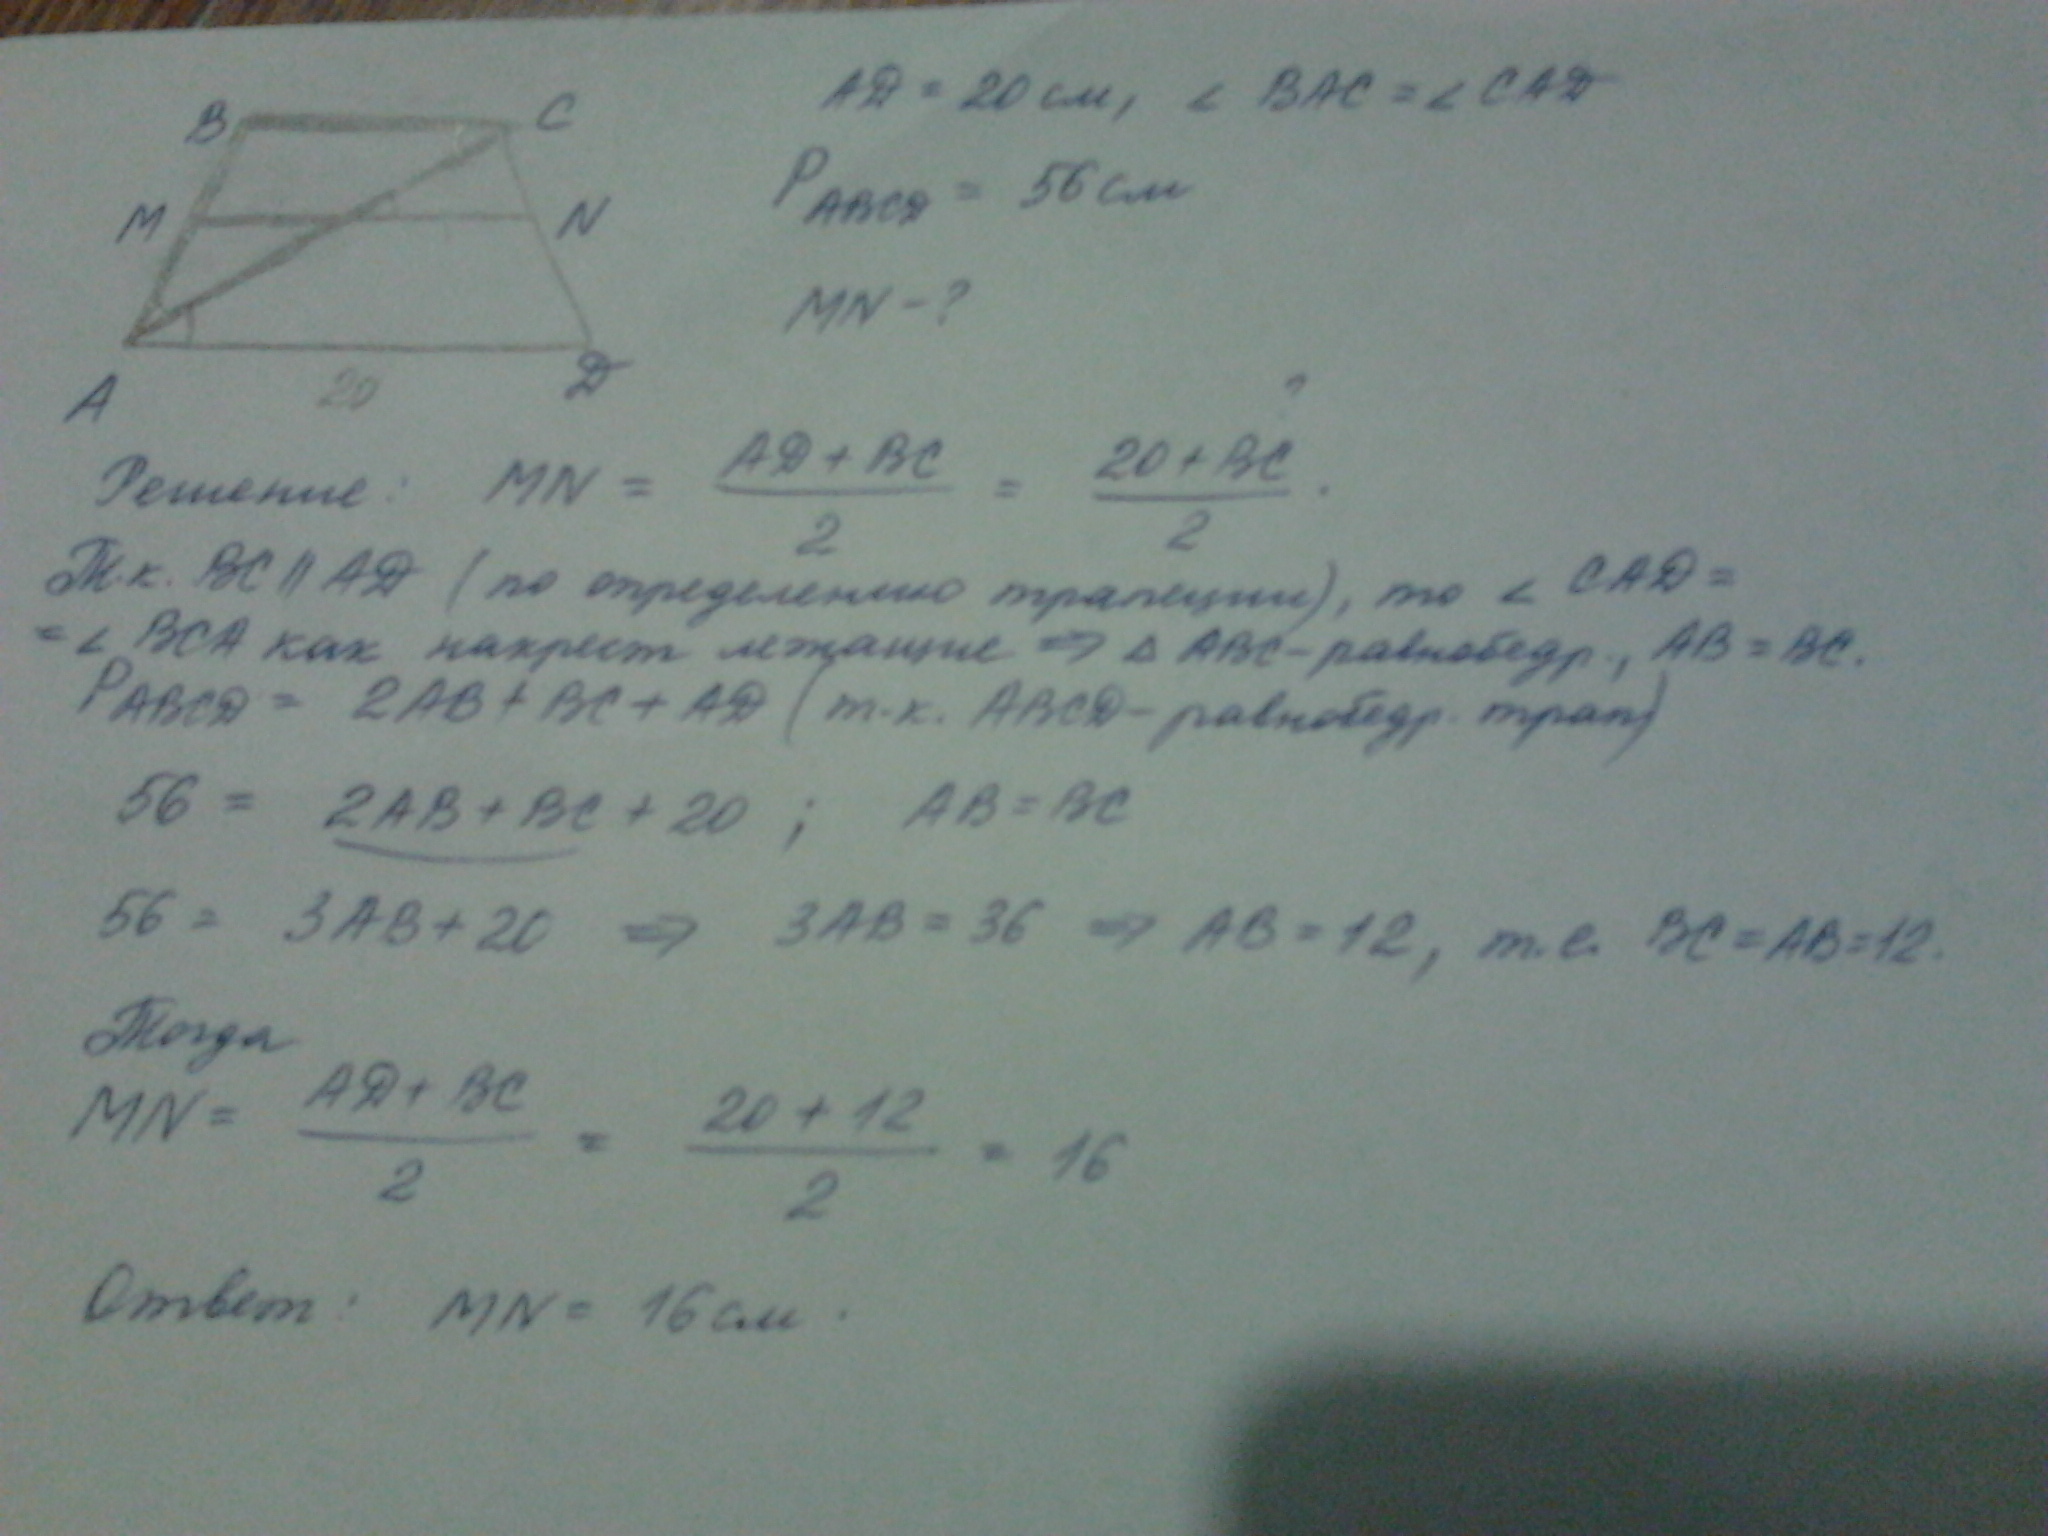 B C
M N
A 20 D
AD = 20 см, ∠ BAC = ∠ CAD
P ABCD = 56 см
MN - ?
?
Решение: MN = (AD + BC)/2 = (20 + BC)/2 .
Т.к. BC || AD (по определению трапеции), то ∠ CAD =
= ∠ BCA как накрест лежащие ⇒ Δ ABC - равнобедр., AB = BC.
P ABCD = 2AB + BC + AD (т.к. ABCD - равнобедр. трап)
56 = 2AB + BC + 20 ; AB = BC
56 = 3AB + 20 ⇒ 3AB = 36 ⇒ AB = 12, т.е. BC = AB = 12.
Тогда
MN = (AD + BC)/2 = (20 + 12)/2 = 16
Ответ: MN = 16 см .